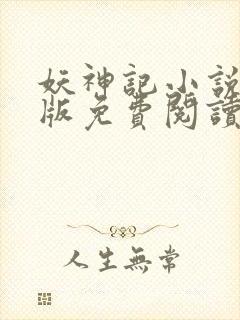 妖神記小說
版免費閱讀
人生無常